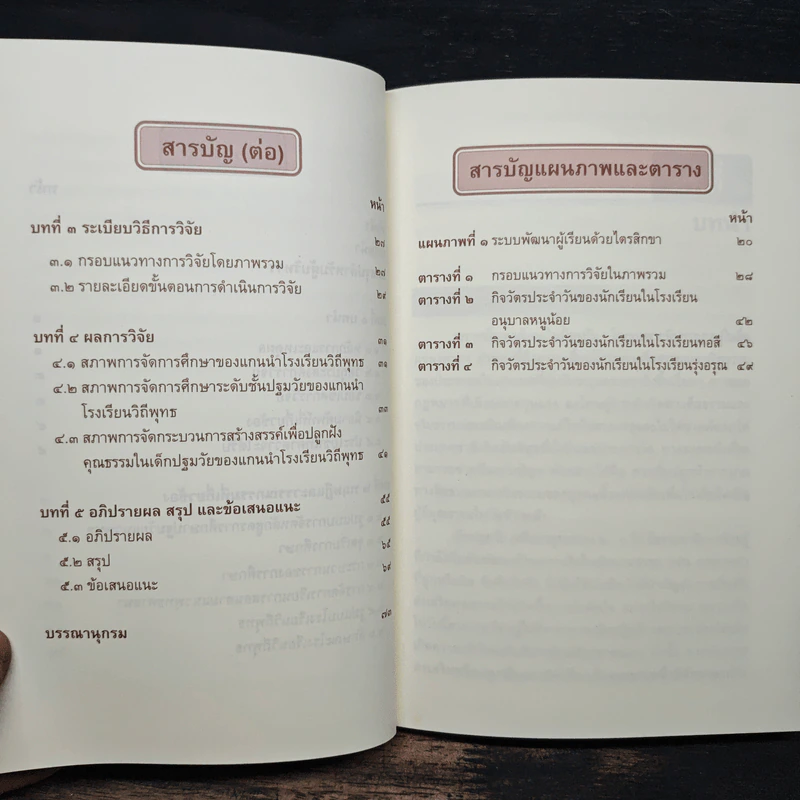 สารบัญ (ต่อ)
หน้า
บทที่ ๓ ระเบียบวิธีการวิจัย ๒๗
๓.๑ กรอบแนวทางการวิจัยโดยภาพรวม ๒๗
๓.๒ รายละเอียดขั้นตอนการดำเนินการวิจัย ๒๙
บทที่ ๔ ผลการวิจัย ๓๑
๔.๑ สภาพการจัดการศึกษาของแกนนำโรงเรียนวิถีพุทธ ๓๑
๔.๒ สภาพการจัดการศึกษาระดับชั้นปฐมวัยของแกนนำ
โรงเรียนวิถีพุทธ ๓๓
๔.๓ สภาพการจัดกระบวนการสร้างสรรค์เพื่อปลูกฝัง
คุณธรรมในเด็กปฐมวัยของแกนนำโรงเรียนวิถีพุทธ ๔๑
บทที่ ๕ อภิปรายผล สรุป และข้อเสนอแนะ ๕๕
๕.๑ อภิปรายผล ๕๕
๕.๒ สรุป ๖๕
๕.๓ ข้อเสนอแนะ ๖๙
บรรณานุกรม ๗๓
สารบัญแผนภาพและตาราง
หน้า
แผนภาพที่ ๑ ระบบพัฒนาผู้เรียนด้วยไตรสิกขา ๒๐
ตารางที่ ๑ กรอบแนวทางการวิจัยในภาพรวม ๒๘
ตารางที่ ๒ กิจวัตรประจำวันของนักเรียนในโรงเรียน
อนุบาลหนูน้อย ๔๒
ตารางที่ ๓ กิจวัตรประจำวันของนักเรียนในโรงเรียนทอสี ๔๖
ตารางที่ ๔ กิจวัตรประจำวันของนักเรียนในโรงเรียนรุ่งอรุณ ๔๙